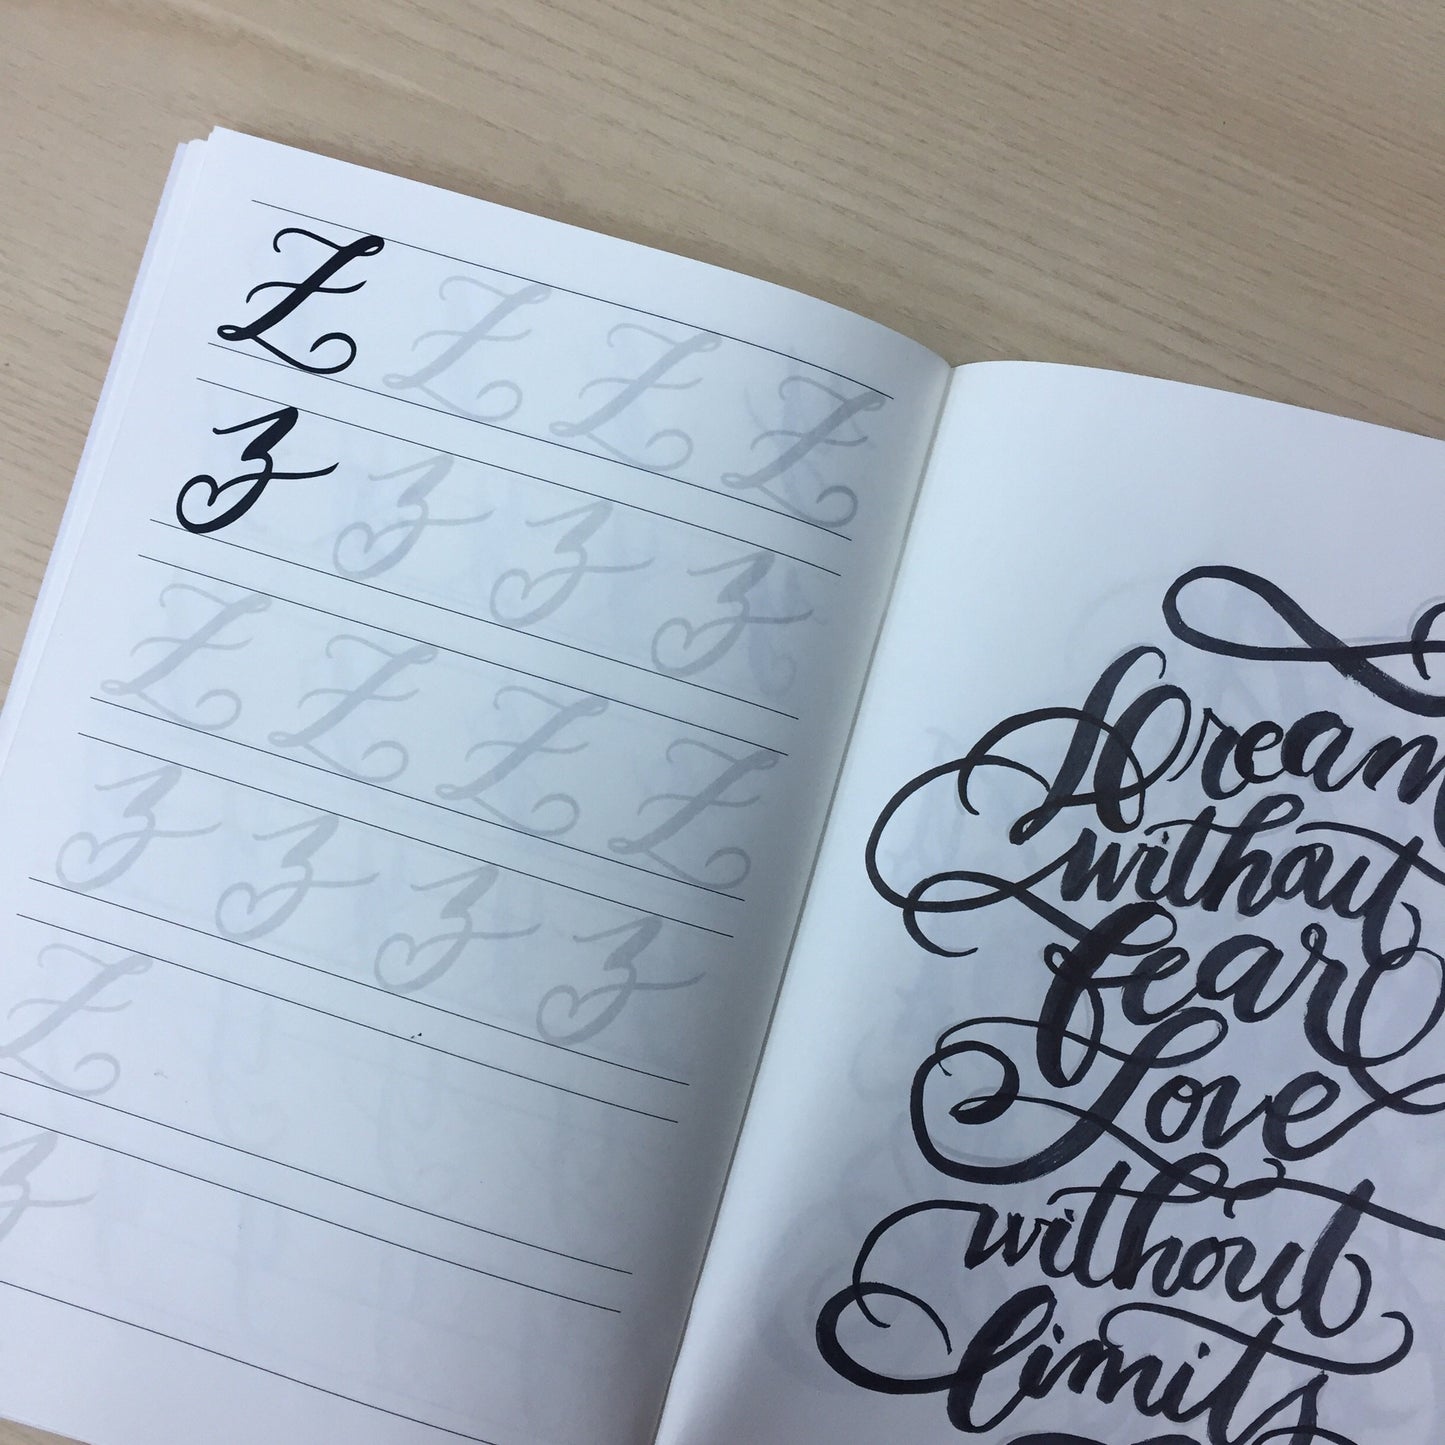 Z Z Z Z
z z z z
Z Z Z Z
z z z z
Z
z
Dream
without
fear
Love
without
limits